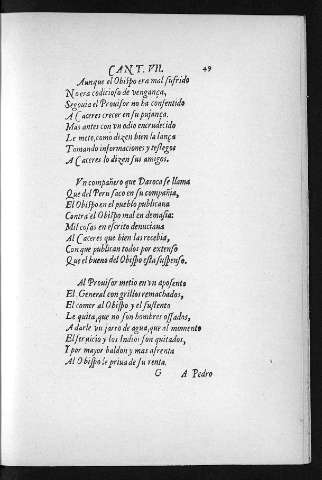 CANT. VII. 49
Aunque el Obispo era mal sufrido
No era codicioso de vengança,
Segovia el Provisor no ha consentido
A Caceres crecer en su pujança.
Mas antes con vn odio encrudecido
Le meto, como dizen bien la lança
Tomando informaciones y testigos
A Caceres lo dizen sus amigos.
Vn compañero que Daroca se llama
Que del Peru saco en su compañia,
El Obispo en el pueblo publicana
Contra el Obispo mal en demasia:
Mil cosas en escrito denuciana
Al Caceres que bien las recebia,
Con que publican todos por extenso
Que el bueno del Obispo esta suspenso.
Al Provisor metio en vn aposento
El General con grillos remachados,
El comer al Obispo y el sustento
Le quita, que no son hombres ossados,
A darle vn jarro de agua, que al momento
El servicio y los Indios son quitados,
Y por mayor baldon y mas afrenta
Al Obispo le priua de su renta.
G A Pedro